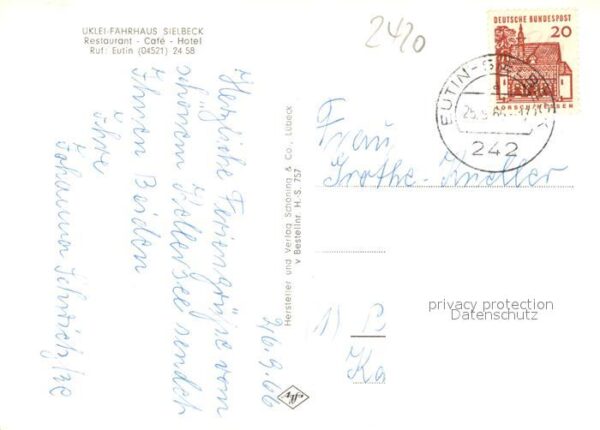 UKLEI-FÄHRHAUS SIELBECK
Restaurant - Café - Hotel
Ruf: Eutin (04521) 24 58
2420
DEUTSCHE BUNDESPOST
20
LORSCH/HESSEN
EUTIN-
242
Herzliche Feriengrüße vom
schönen Kellersee sendet
Ihnen Beiden
Ihre
Johanna
26.9.66
Hersteller und Verlag Schöning & Co., Lübeck
v Bestellnr. H. S. 757
Frau
Grothe-
1) P
Ka
privacy protection
Datenschutz